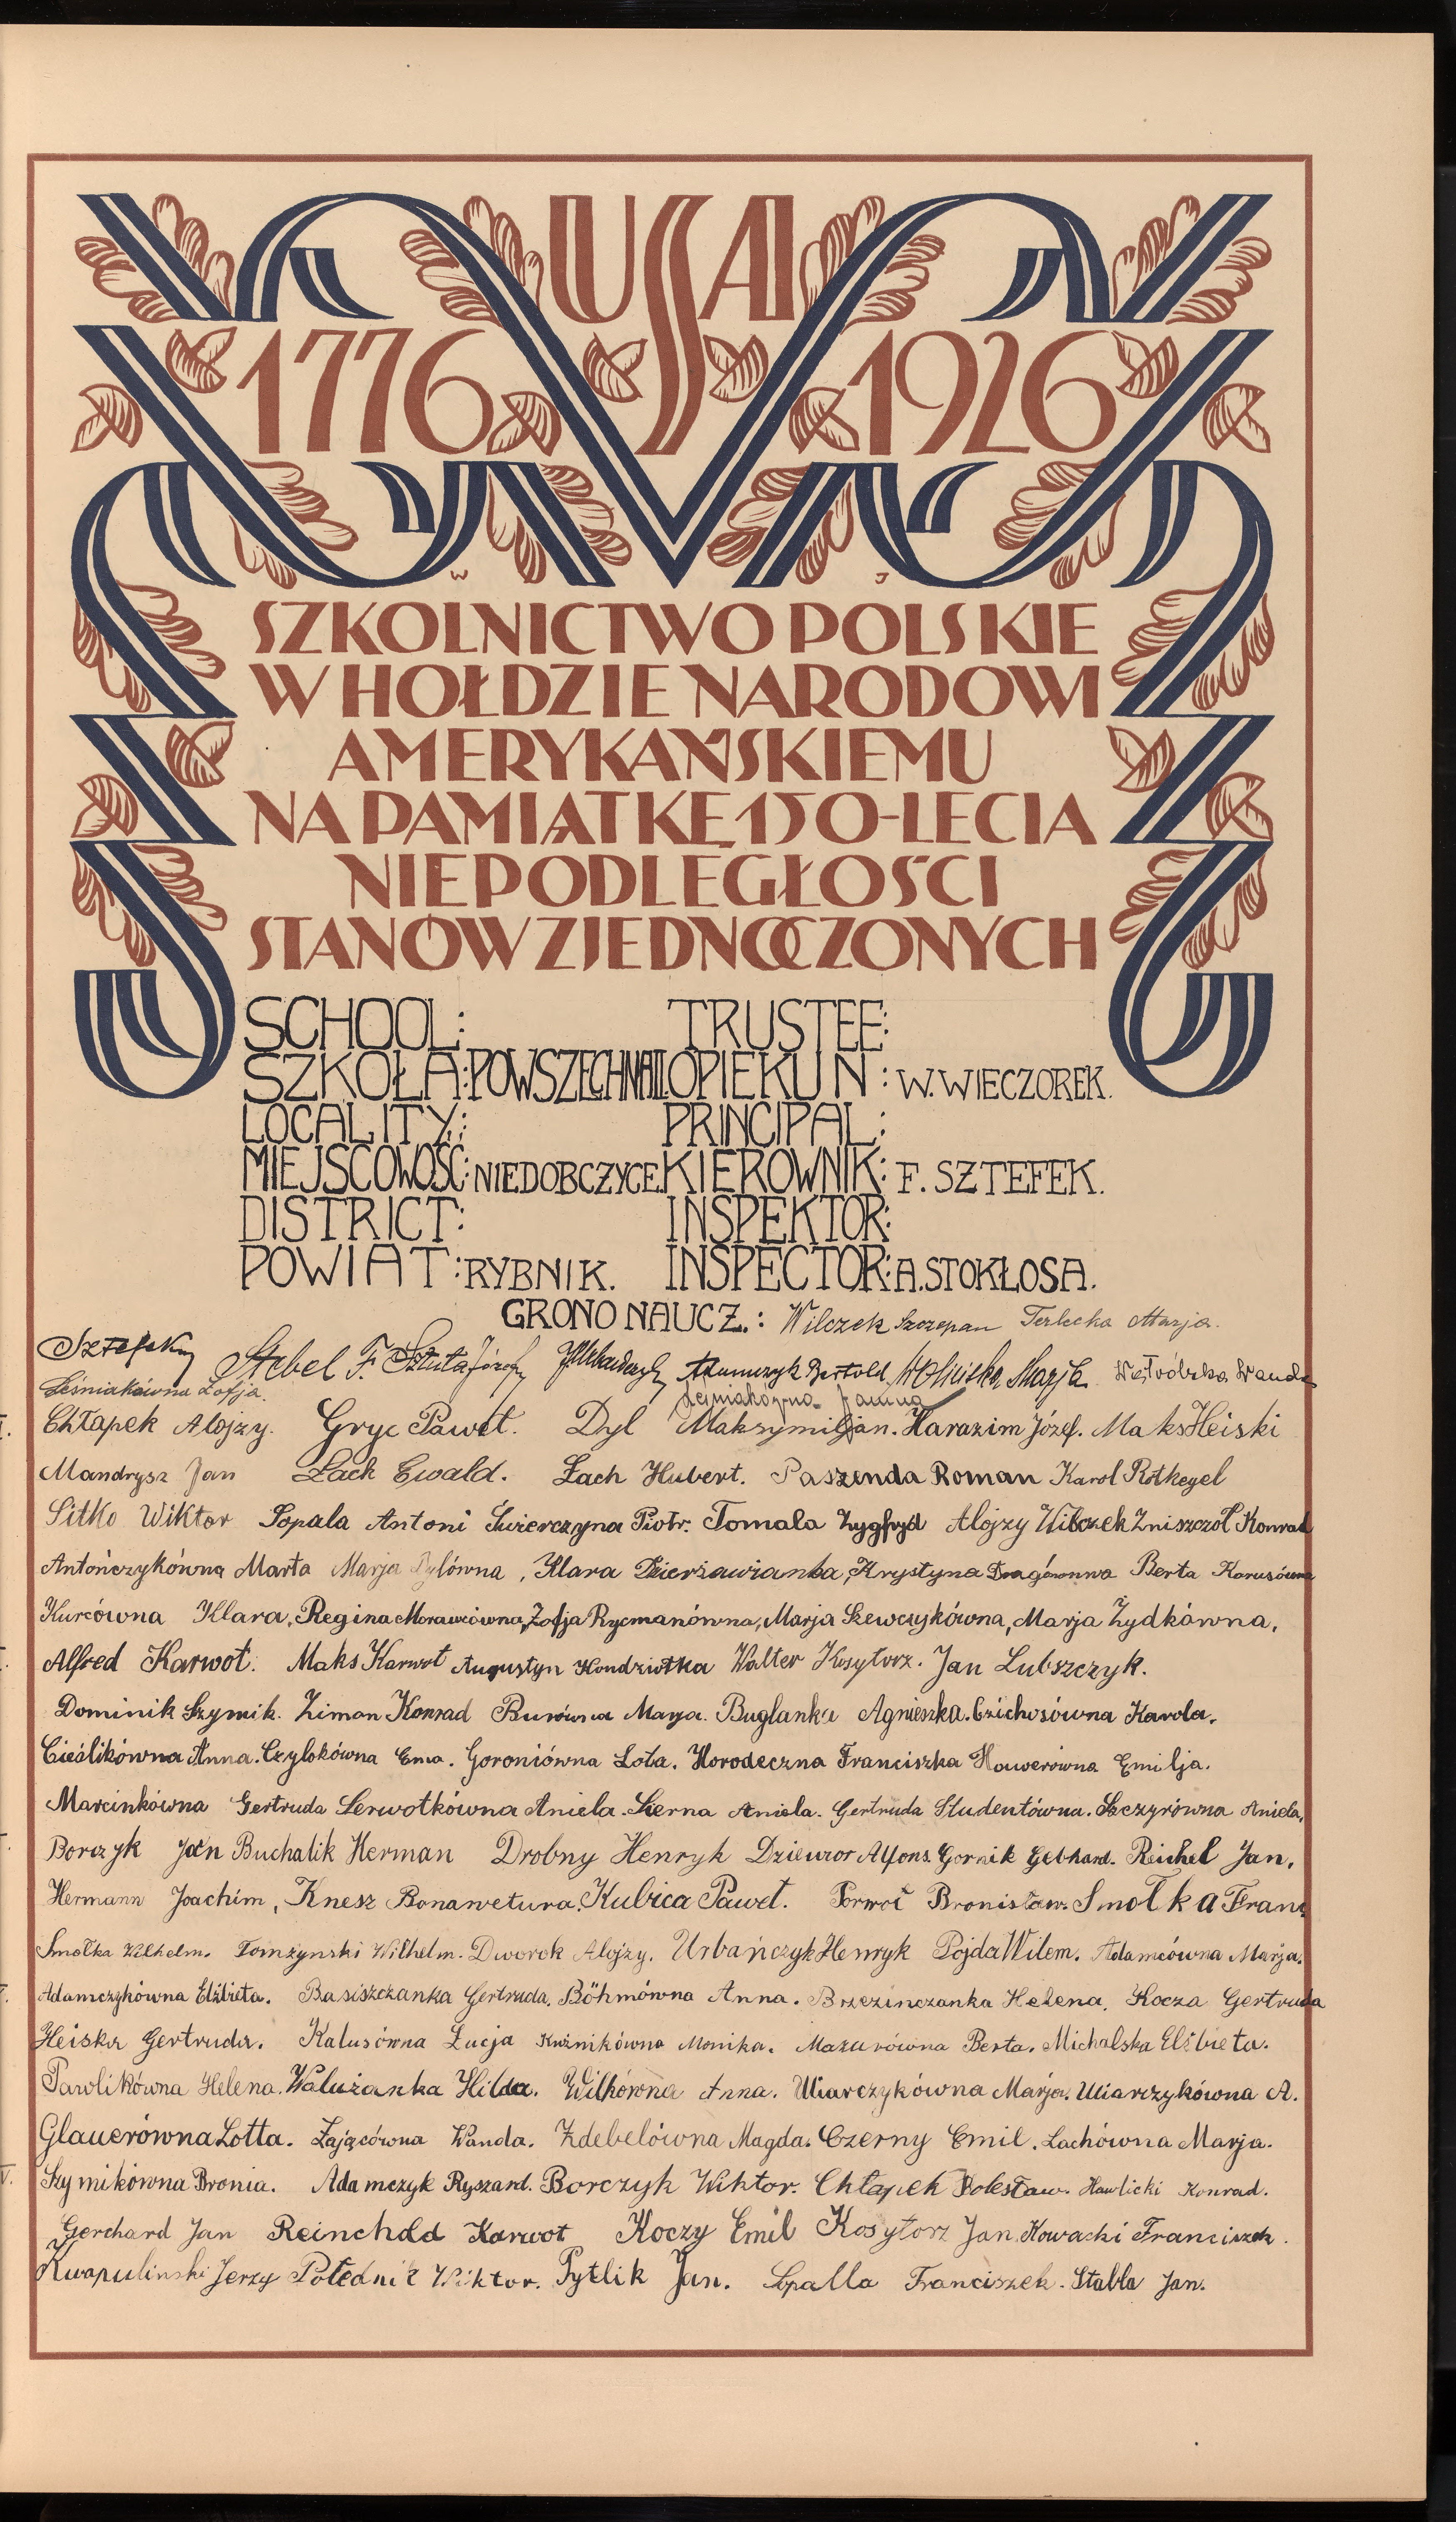 USA
1776 1926
W J
SZKOLNICTWO POLSKIE
W HOŁDZIE NARODOWI
AMERYKAŃSKIEMU
NA PAMIĄTKĘ 150-LECIA
NIEPODLEGŁOŚCI
STANÓW ZJEDNOCZONYCH
SCHOOL: TRUSTEE:
SZKOŁA: POWSZECHNA II. OPIEKUN: W. WIECZOREK.
LOCALITY: PRINCIPAL:
MIEJSCOWOŚĆ: NIEDOBCZYCE. KIEROWNIK: F. SZTEFEK.
DISTRICT: INSPEKTOR:
POWIAT: RYBNIK. INSPECTOR: A. STOKŁOSA.
GRONO NAUCZ.: Wilczek Szczepan Terlecka Marja.
Stebel F. Sztuła Józef Adamczyk Bertold Wolińska Marja Wanda
Leśniakówna Zofja. Janina
Chłapek Alojzy. Gryc Paweł. Dyl Maksymiljan. Harazim Józef. Maks Heiski
Mandrysz Jan Lach Ewald. Lach Hubert. Paszenda Roman Karol Rotkegel
Sitko Wiktor Sopala Antoni Świerczyna Piotr. Tomala Zygfryd Alojzy Wilczek Zniszczoł Konrad
Antończykówna Marta Marja Dylówna, Klara Dzierżawianka, Krystyna Berta Karusówna
Kurcówna Klara, Regina Morawcówna, Zofja Rycmanówna, Marja Szewczykówna, Marja Żydkówna,
Alfred Karwot. Maks Karwot Augustyn Kondziołka Walter Kosytorz. Jan Lubszczyk.
Dominik Szymik. Ziman Konrad Burówna Marja. Buglanka Agnieszka. Czichosówna Karola.
Cieślikówna Anna. Czylokówna Ema. Goroniówna Lota. Horodeczna Franciszka Hauwerówna Emilja.
Marcinkówna Gertruda Serwotkówna Aniela. Sierna Aniela. Gertruda Studentówna. Szczyrówna Aniela,
Borczyk Jan Buchalik Herman Drobny Henryk Dziewior Alfons Gornik Gebhard. Reichel Jan.
Hermann Joachim, Knesz Bonawetura. Kubica Paweł. Porwoł Bronisław. Smołka Franc
Smołka Wilhelm. Tomżynski Wilhelm. Dworok Alojzy. Urbańczyk Henryk Pojda Wilem. Adamcówna Marja.
Adamczykówna Elżbieta. Basiszczanka Gertruda. Böhmówna Anna. Brzezinczanka Helena. Kocza Gertruda
Heiska Gertruda. Kalusówna Łucja Kuźnikówna Monika. Mazurówna Berta. Michalska Elżbieta.
Pawlikówna Helena. Walużanka Hilda. Witkówna Anna. Wiarczykówna Marja. Wiarczykówna A.
Glauerówna Lotta. Zającówna Wanda. Zdebelówna Magda. Czerny Emil. Lachówna Marja.
Szymikówna Bronia. Adamczyk Ryszard. Borczyk Wiktor. Chłapek Bolesław. Hawlicki Konrad.
Gerchard Jan Reinchold Karwot Koczy Emil Kosytorz Jan. Kowacki Franciszek.
Kwapulinski Jerzy Połednik Wiktor. Pytlik Jan. Spalla Franciszek. Stabla Jan.